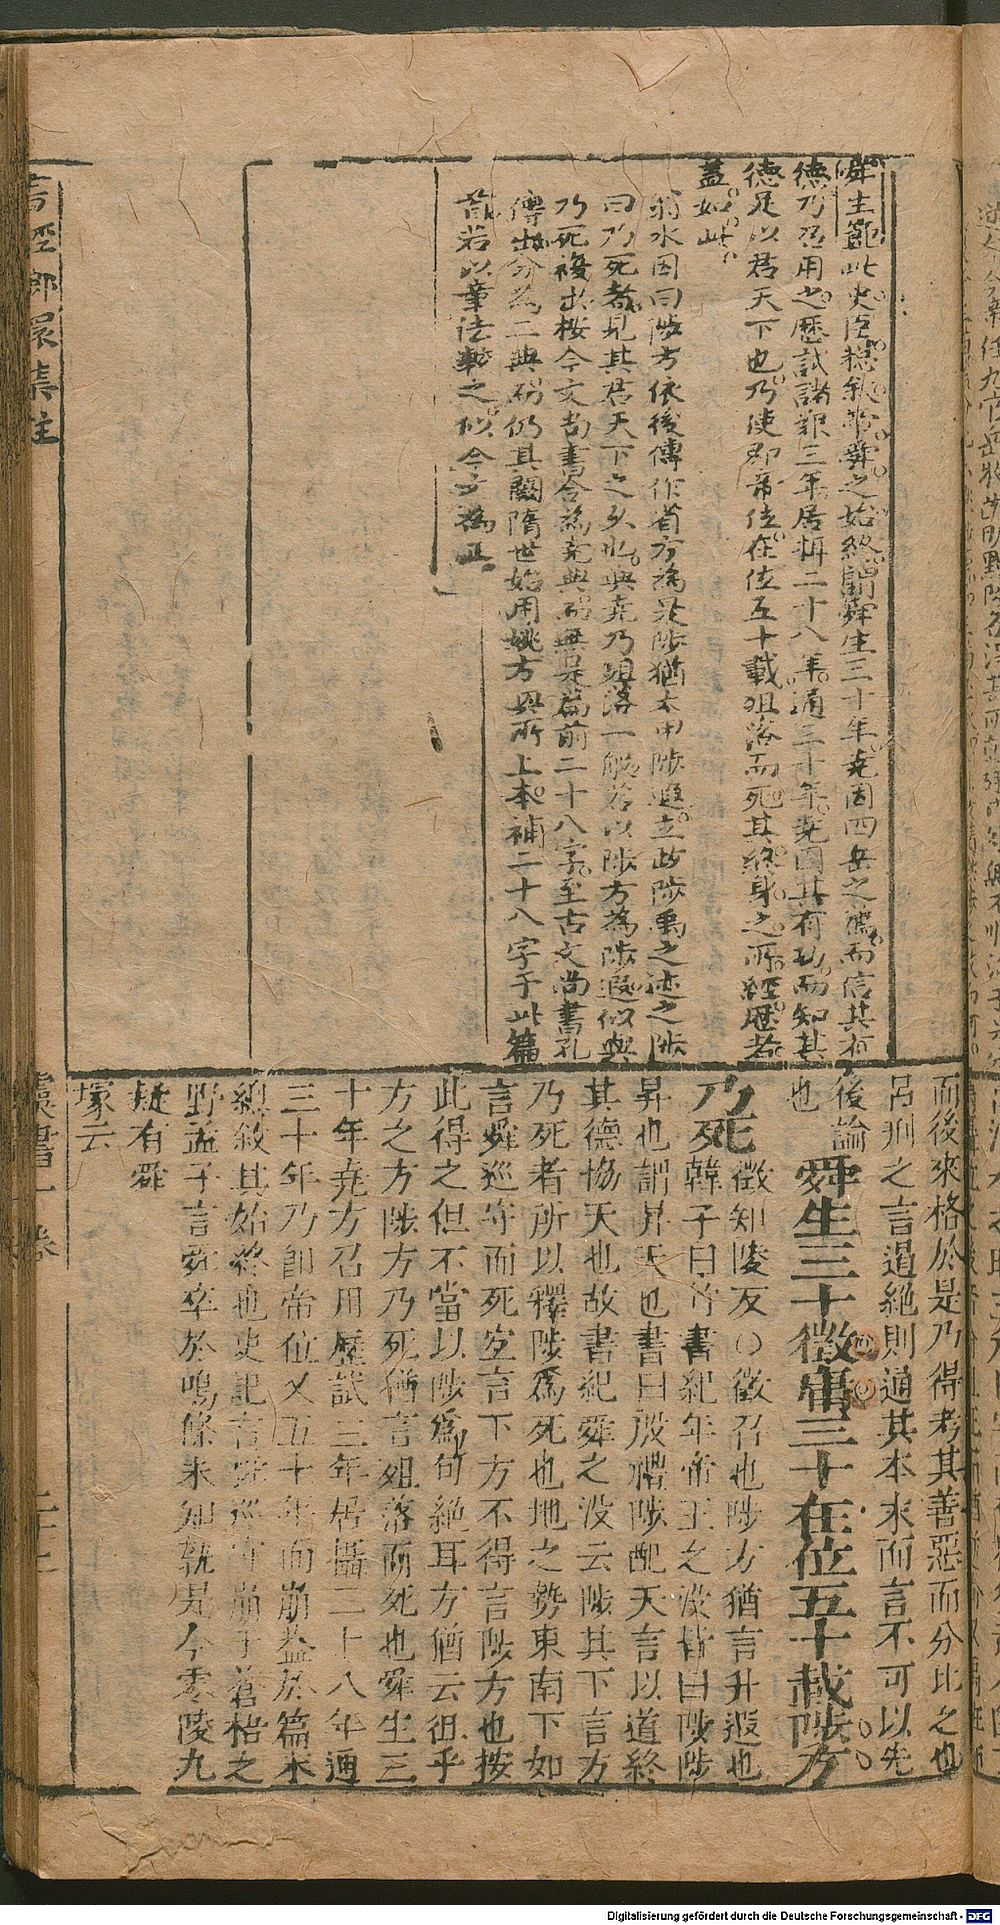 舜生節此史臣總敘帝舜之始終謂舜生三十年堯因四岳之薦而信其有
德乃召用之歷試諸艱三年居攝二十八年通三十年堯因其有功而知其
德足以君天下也乃使卽帝位在位五十載殂落而死其終身之所經歷若
蓋如此
水因曰陟方依後傳作省方為是陟猶太甲陟遐立政陟禹之迹之陟
曰乃死者見其君天下之久也與堯乃殂落一般若以陟方為陟遐似與
乃死複出按今文尚書合為堯典而無是篇前二十八字至古文尚書孔
傳出分為二典仍其闕隋世始用姚方興所上本補二十八字于此篇
首若以章法較之似今文為正
而後來格於是乃得考其善惡而分比之也
呂刑之言遏絕則通其本末而言不可以先
後論也
舜生三十徵庸三十在位五十載陟方
乃死
徵知陵反○徵召也陟方猶言升遐也
韓子曰竹書紀年帝王之沒皆曰陟陟
昇也謂昇天也書曰殷禮陟配天言以道終
其德協天也故書紀舜之沒云陟其下言方
乃死者所以釋陟為死也地之勢東南下如
言舜巡守而死宜言下方不得言陟方也按
此得之但不當以陟為句絕耳方猶云徂乎
方之方陟方乃死猶言殂落而死也舜生三
十年堯方召用歷試三年居攝二十八年通
三十年乃卽帝位又五十年而崩蓋於篇末
總敘其始終也史記言舜巡守崩于蒼梧之
野孟子言舜卒於鳴條未知孰是今零陵九
疑有舜
塚云
書經郎嬛集注
虞書一卷
Digitalisierung gefördert durch die Deutsche Forschungsgemeinschaft - DFG